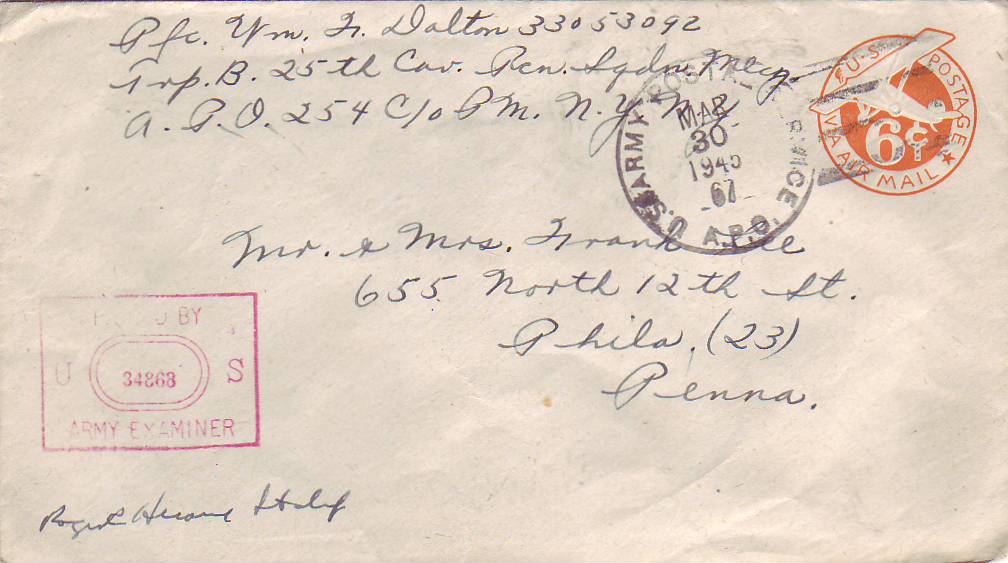 Pfc. Wm. F. Dalton 33053092
Trp. B. 25th Cav. Rcn. Sqdn. Mecz.
A. P. O. 254 C/o P M. N. Y. N. Y.
U.S. POSTAGE
6¢
VIA AIR MAIL
U.S. ARMY POSTAL SERVICE
MAR
30
1945
67
A.P.O.
Mr. & Mrs. Frank Lee
655 North 12th St.
Phila. (23)
Penna.
BY
U 34868 S
ARMY EXAMINER